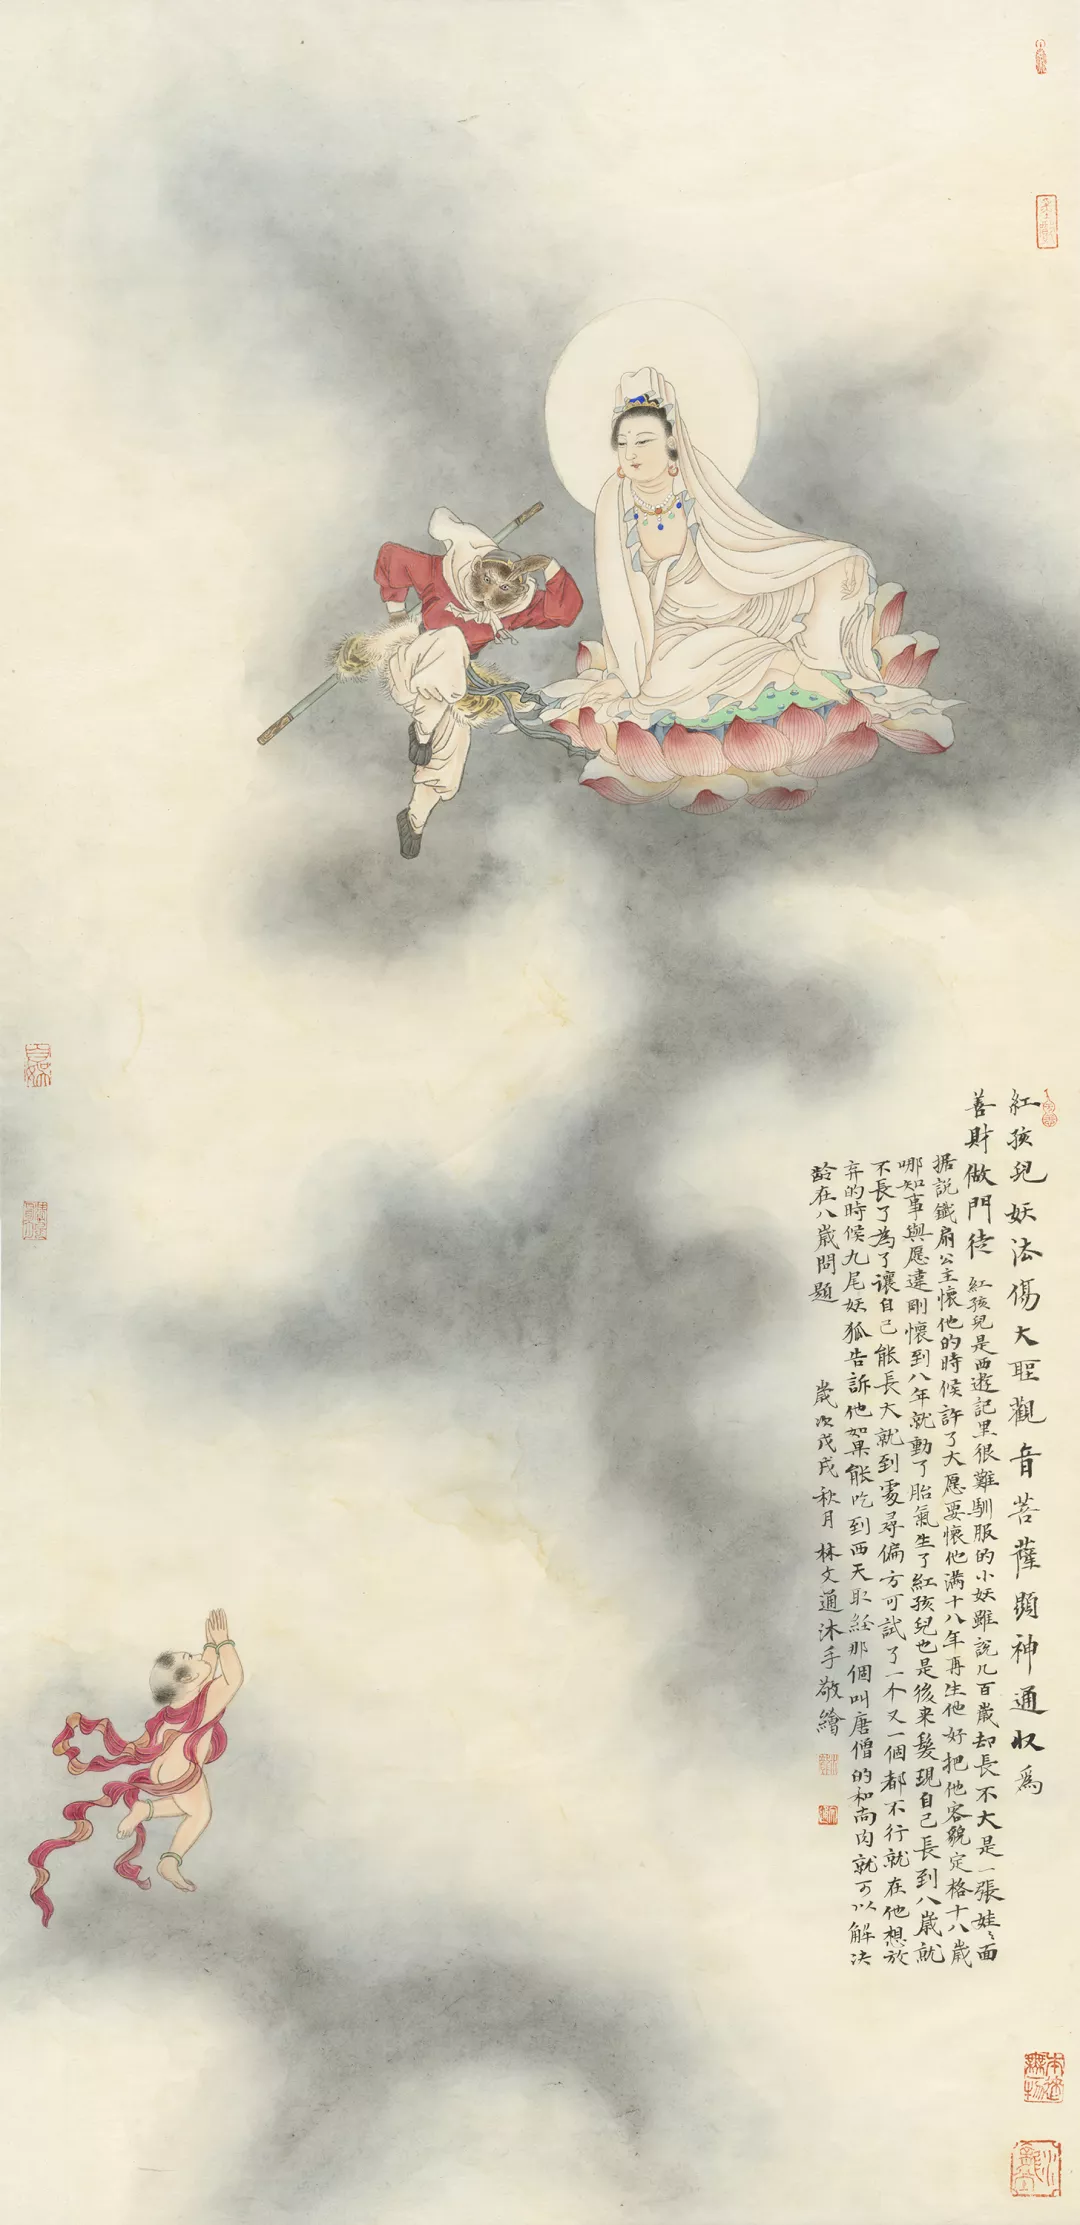 紅孩兒妖法傷大聖觀音菩薩顯神通収爲
善財做門徒 紅孩兒是西遊記里很難馴服的小妖雖說几百歲却長不大是一張娃〻面
据說鐵扇公主懷他的時候許了大愿要懷他滿十八年再生他好把他容貌定格十八歲
哪知事與愿違剛懷到八年就動了胎氣生了紅孩兒也是後来髮現自己長到八歲就
不長了為了讓自己能長大就到處尋偏方可試了一个又一個都不行就在他想放
弃的時候九尾妖狐告訴他如果能吃到西天取經那個叫唐僧的和尚肉就可以解决
齡在八歲問題 歲次戊戌秋月林文通沐手敬繪
本來無一物